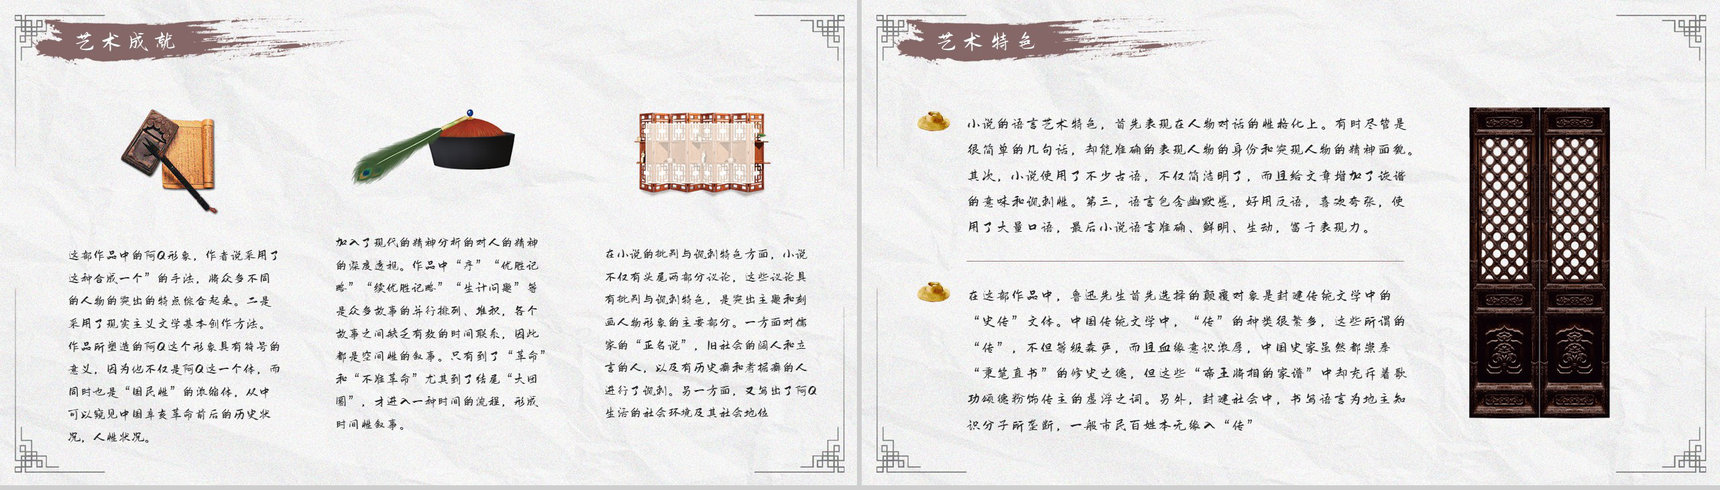 艺术成就
这部作品中的阿Q形象，作者说采用了
这种合成一个”的手法，将众多不同
的人物的突出的特点综合起来。二是
采用了现实主义文学基本创作方法。
作品所塑造的阿Q这个形象具有符号的
意义，因为他不仅是阿Q这一个体，而
同时也是“国民性”的浓缩体，从中
可以窥见中国辛亥革命前后的历史状
况，人性状况。
加入了现代的精神分析的对人的精神
的深度透视。作品中“序”“优胜记
略”“续优胜记略”“生计问题”等
是众多故事的并行排列、堆积，各个
故事之间缺乏有效的时间联系，因此
都是空间性的叙事。只有到了“革命”
和“不准革命”尤其到了结尾“大团
圆”，才进入一种时间的流程，形成
时间性叙事。
在小说的批判与讽刺特色方面，小说
不仅有头尾两部分议论，这些议论具
有批判与讽刺特色，是突出主题和刻
画人物形象的主要部分。一方面对儒
家的“正名说”，旧社会的阔人和立
言的人，以及有历史癖和考据癖的人
进行了讽刺。另一方面，又写出了阿Q
生活的社会环境及其社会地位
艺术特色
小说的语言艺术特色，首先表现在人物对话的性格化上。有时尽管是
很简单的几句话，却能准确的表现人物的身份和突现人物的精神面貌。
其次，小说使用了不少古语，不仅简洁明了，而且给文章增加了诙谐
的意味和讽刺性。第三，语言包含幽默感，好用反语，喜次夸张，使
用了大量口语，最后小说语言准确、鲜明、生动，富于表现力。
在这部作品中，鲁迅先生首先选择的颠覆对象是封建传统文学中的
“史传”文体。中国传统文学中，“传”的种类很繁多，这些所谓的
“传”，不但等级森严，而且血缘意识浓厚，中国史家虽然都崇奉
“秉笔直书”的修史之德，但这些“帝王将相的家谱”中却充斥着歌
功颂德粉饰传主的虚浮之词。另外，封建社会中，书写语言为地主知
识分子所垄断，一般市民百姓本无缘入“传”